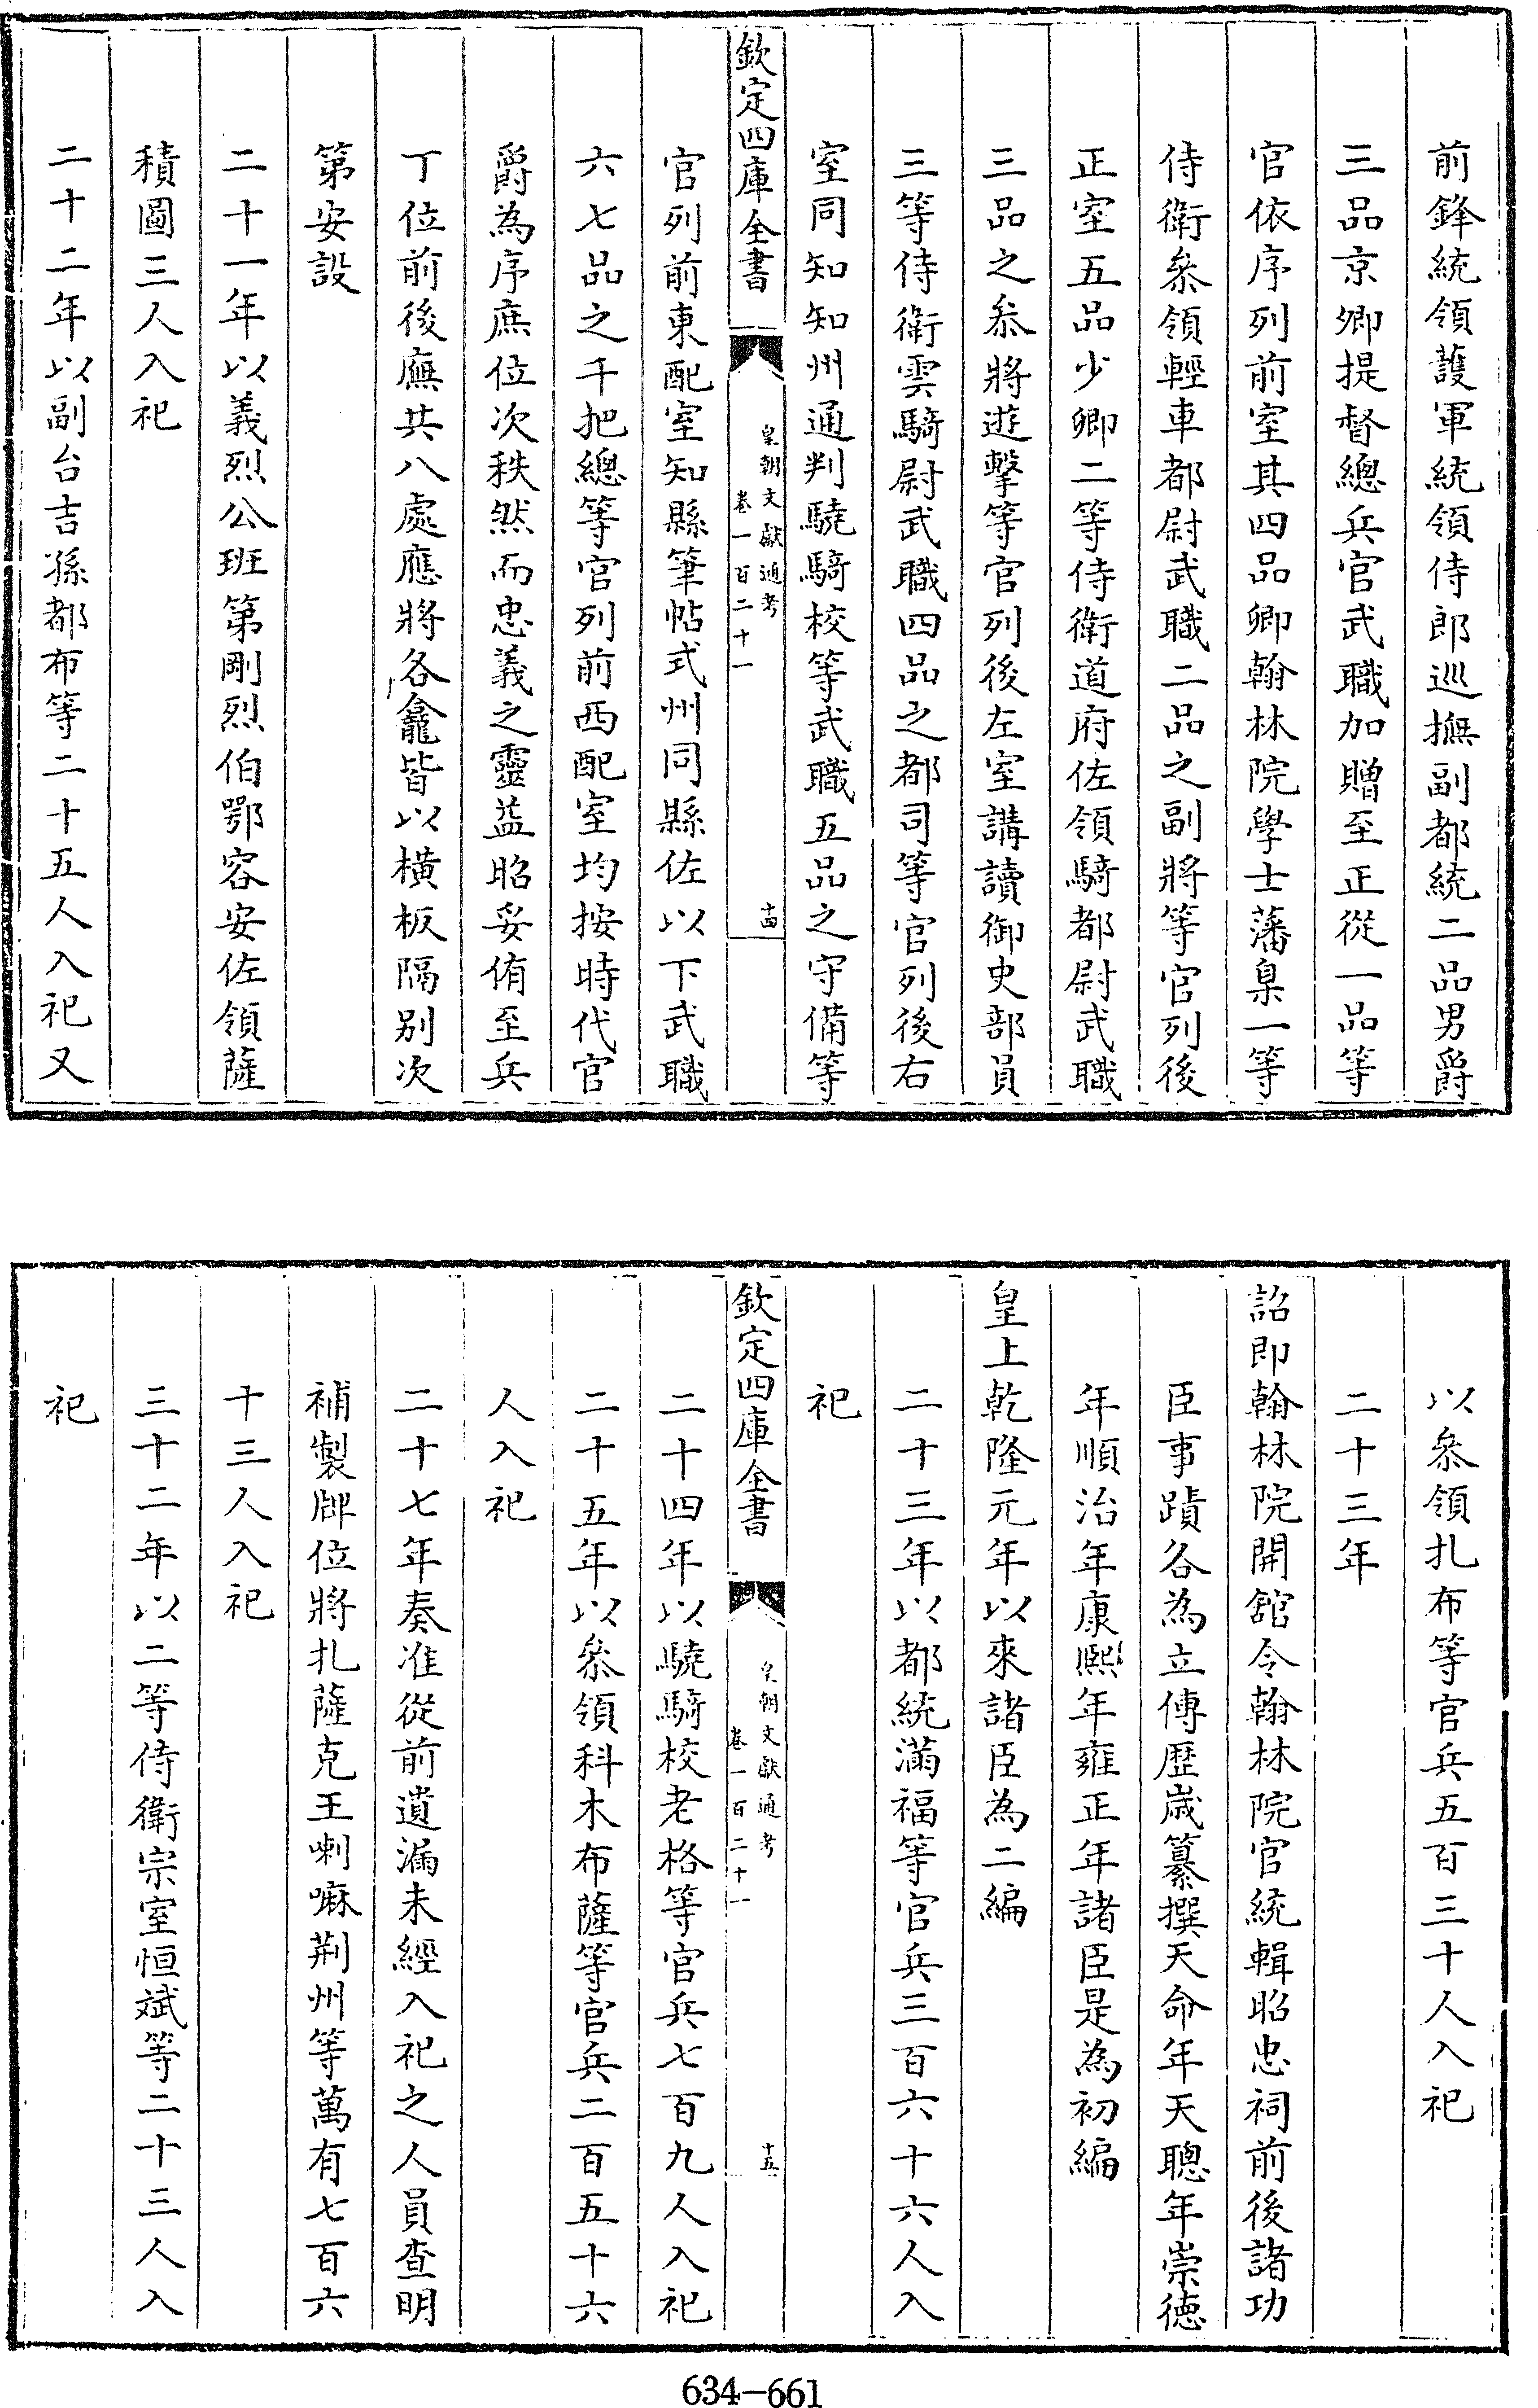 前鋒統領護軍統領侍郎巡撫副都統二品男爵
三品京卿提督總兵官武職加贈至正從一品等
官依序列前室其四品卿翰林院學士藩臬一等
侍衛叅領輕車都尉武職二品之副將等官列後
正室五品少卿二等侍衛道府佐領騎都尉武職
三品之叅將遊擊等官列後左室講讀御史部員
三等侍衛雲騎尉武職四品之都司等官列後右
室同知知州通判驍騎校等武職五品之守備等
欽定四庫全書
皇朝文獻通考
卷一百二十一
十四
官列前東配室知縣筆帖式州同縣佐以下武職
六七品之千把總等官列前西配室均按時代官
爵為序庶位次秩然而忠義之靈益昭妥侑至兵
丁位前後廡共八處應將各龕皆以橫板隔別次
第安設
二十一年以義烈公班第剛烈伯鄂容安佐領薩
積圖三人入祀
二十二年以副台吉孫都布等二十五人入祀又
以叅領扎布等官兵五百三十人入祀
二十三年
詔即翰林院開舘令翰林院官統輯昭忠祠前後諸功
臣事蹟各為立傳歷歲纂撰天命年天聰年崇德
年順治年康熙年雍正年諸臣是為初編
皇上乾隆元年以來諸臣為二編
二十三年以都統滿福等官兵三百六十六人入
祀
欽定四庫全書
皇朝文獻通考
卷一百二十一
十五
二十四年以驍騎校老格等官兵七百九人入祀
二十五年以叅領科木布薩等官兵二百五十六
人入祀
二十七年奏准從前遺漏未經入祀之人員查明
補製牌位將扎薩克王喇嘛荆州等萬有七百六
十三人入祀
三十二年以二等侍衛宗室恒斌等二十三人入
祀
634-661